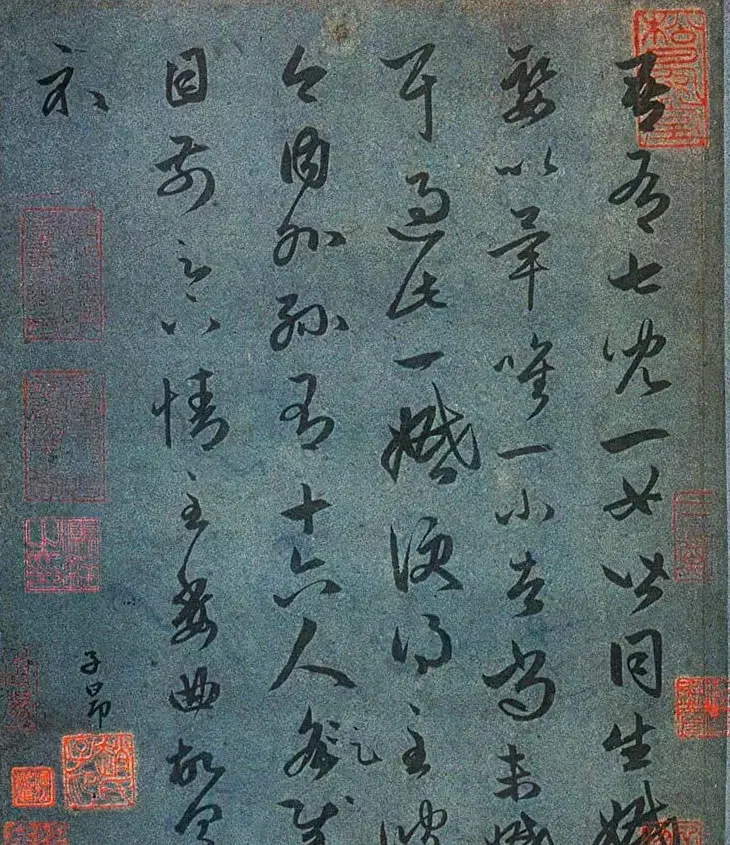 吾有七兒一女皆同生婚
娶以畢唯一小者尚未婚
耳過此一婚便得至彼
今內外孫有十六人足慰
目前足下情至委曲故具
示
子昂
趙氏子昂
松雪齋